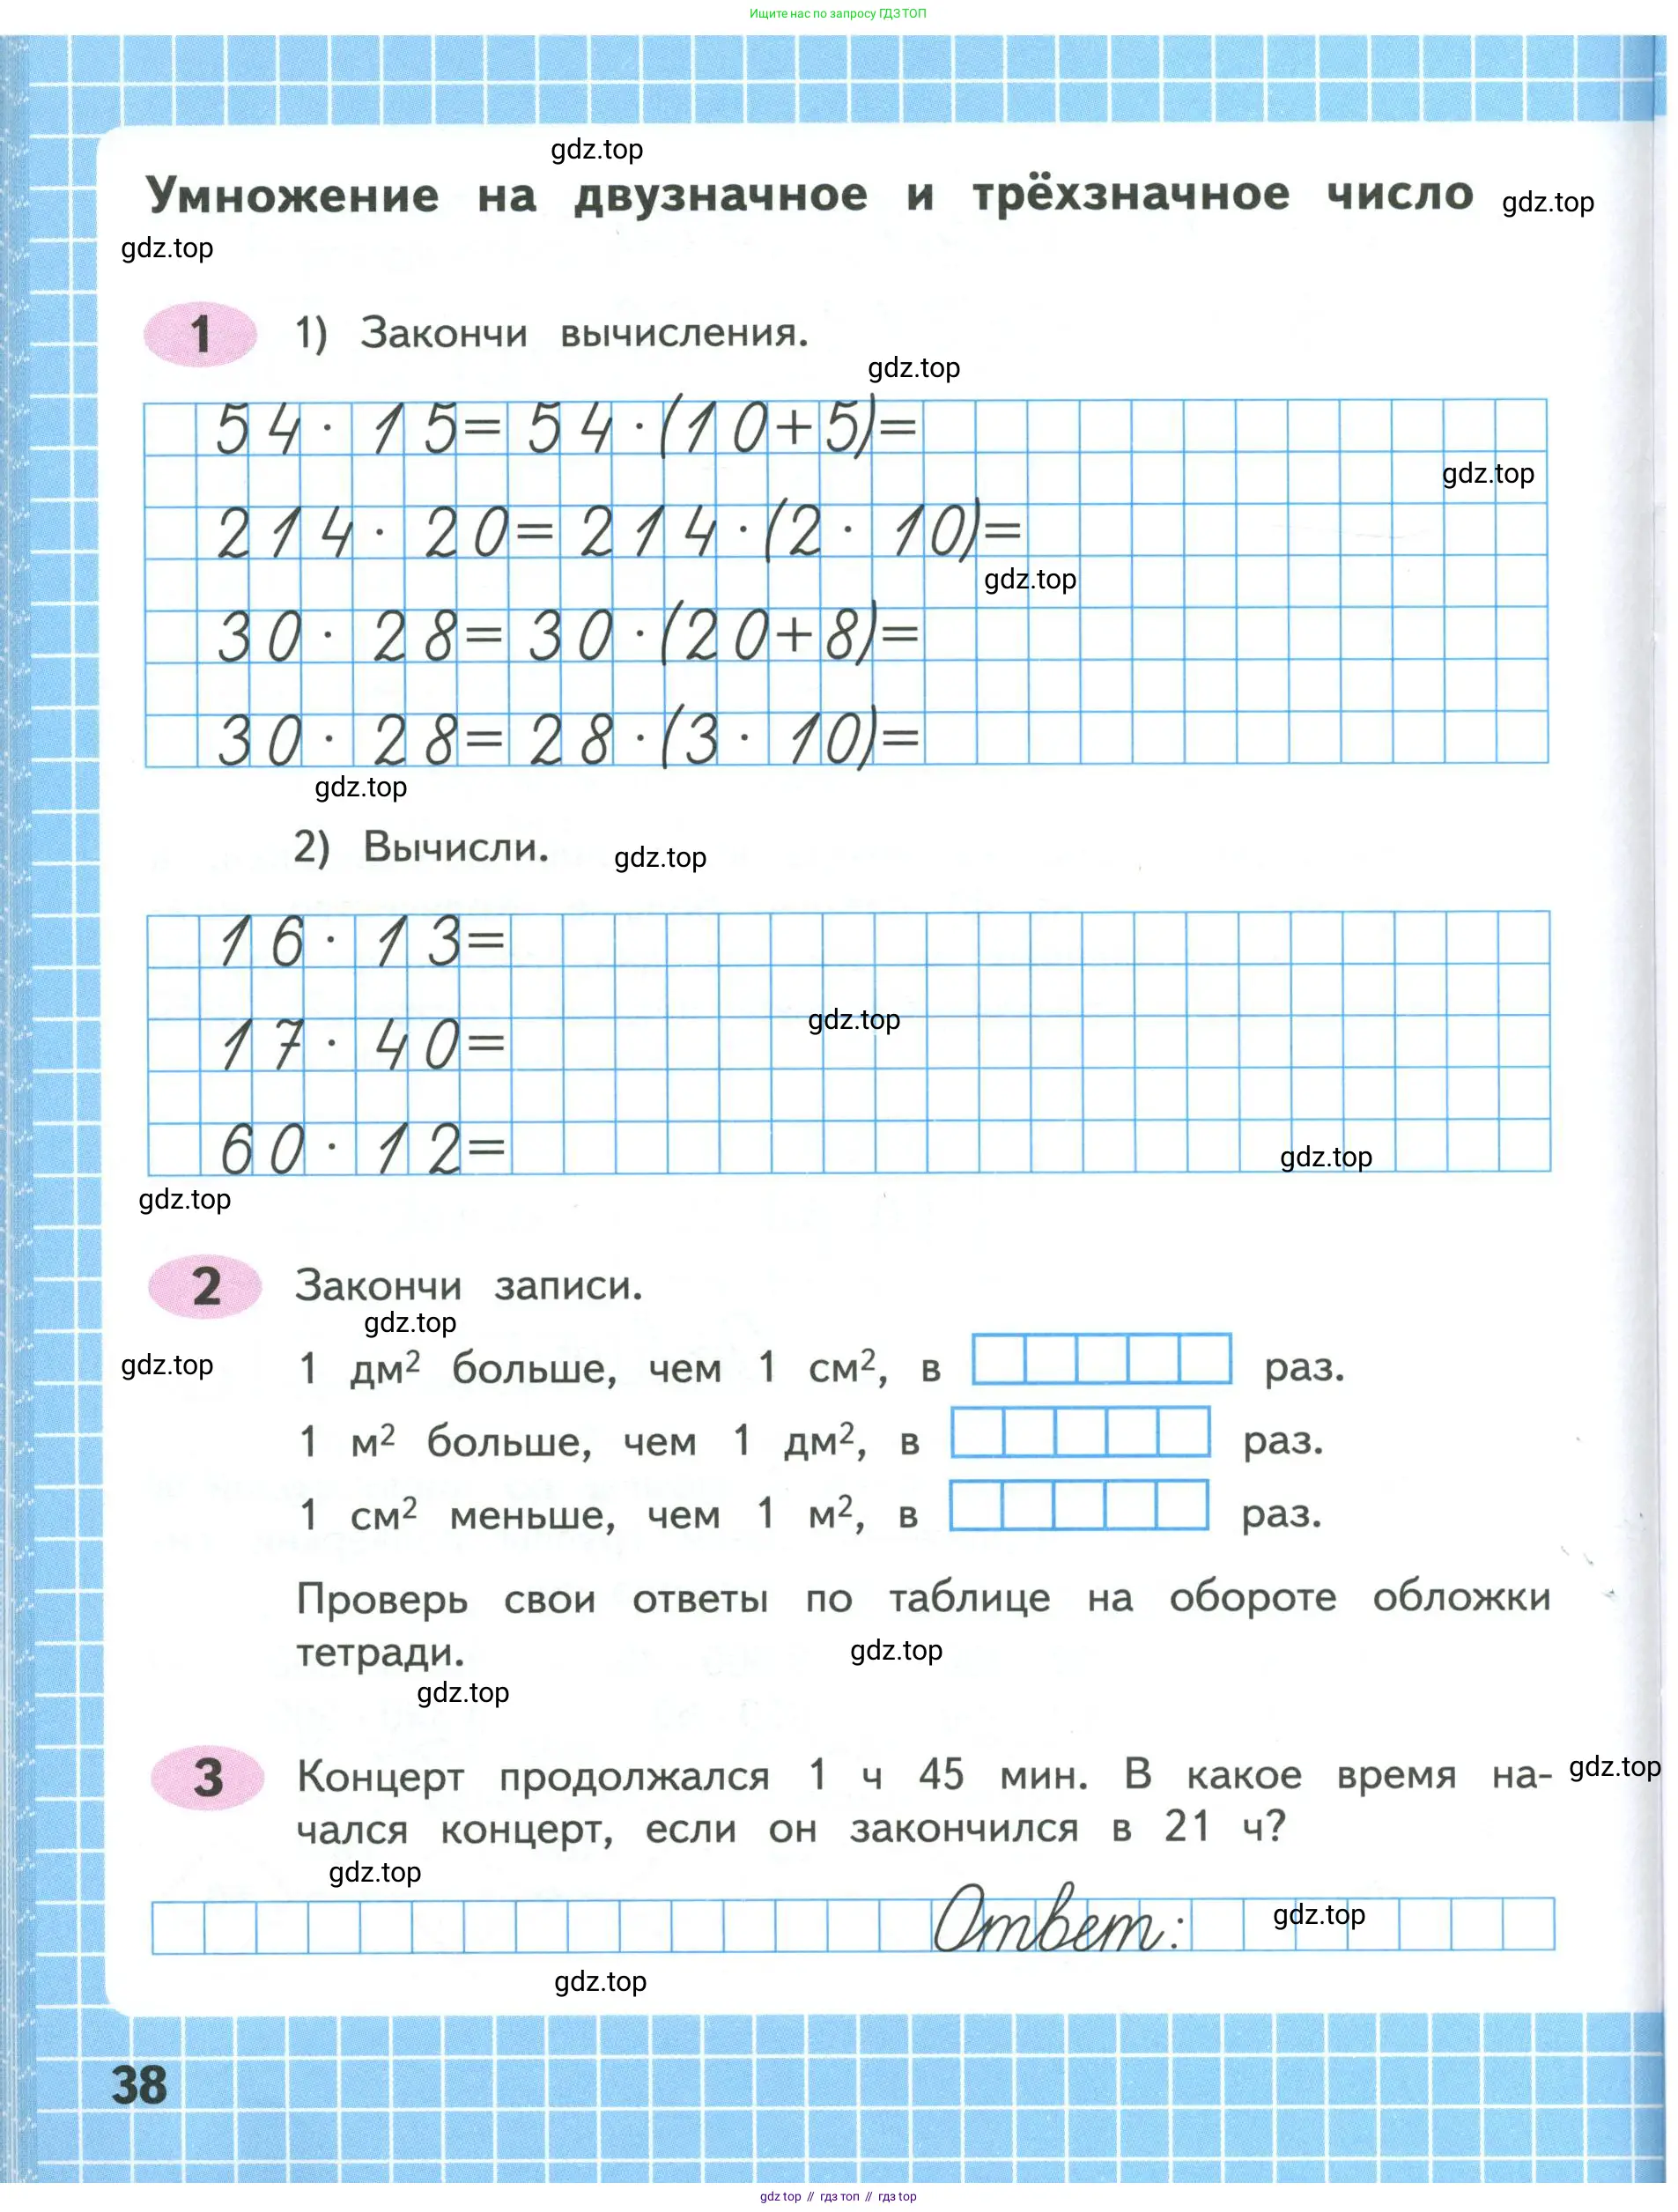 Ищите нас по запросу ГДЗ ТОП
gdz.top
Умножение на двузначное и трёхзначное число
gdz.top
gdz.top
1 1) Закончи вычисления.
gdz.top
54 · 15 = 54 · (10 + 5) =
gdz.top
214 · 20 = 214 · (2 · 10) =
gdz.top
30 · 28 = 30 · (20 + 8) =
30 · 28 = 28 · (3 · 10) =
gdz.top
2) Вычисли.
gdz.top
16 · 13 =
gdz.top
17 · 40 =
60 · 12 =
gdz.top
gdz.top
2 Закончи записи.
gdz.top
gdz.top
1 дм² больше, чем 1 см², в раз.
1 м² больше, чем 1 дм², в раз.
1 см² меньше, чем 1 м², в раз.
Проверь свои ответы по таблице на обороте обложки
тетради.
gdz.top
gdz.top
3 Концерт продолжался 1 ч 45 мин. В какое время на-
gdz.top
чался концерт, если он закончился в 21 ч?
gdz.top
Ответ:
gdz.top
gdz.top
38
gdz top // гдз топ // гдз top